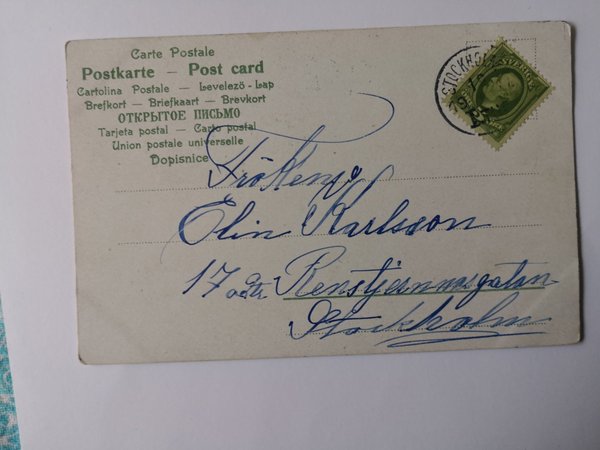 Carte Postale
Postkarte — Post card
Cartolina Postale — Levelező-Lap
Brefkort — Briefkaart — Brevkort
ОТКРЫТОЕ ПИСЬМО
Tarjeta postal — Carto postal
Union postale universelle
Dopisnice
STOCKHOLM
Fröken
Elin Karlsson
17 Renstjernasgatan
Stockholm